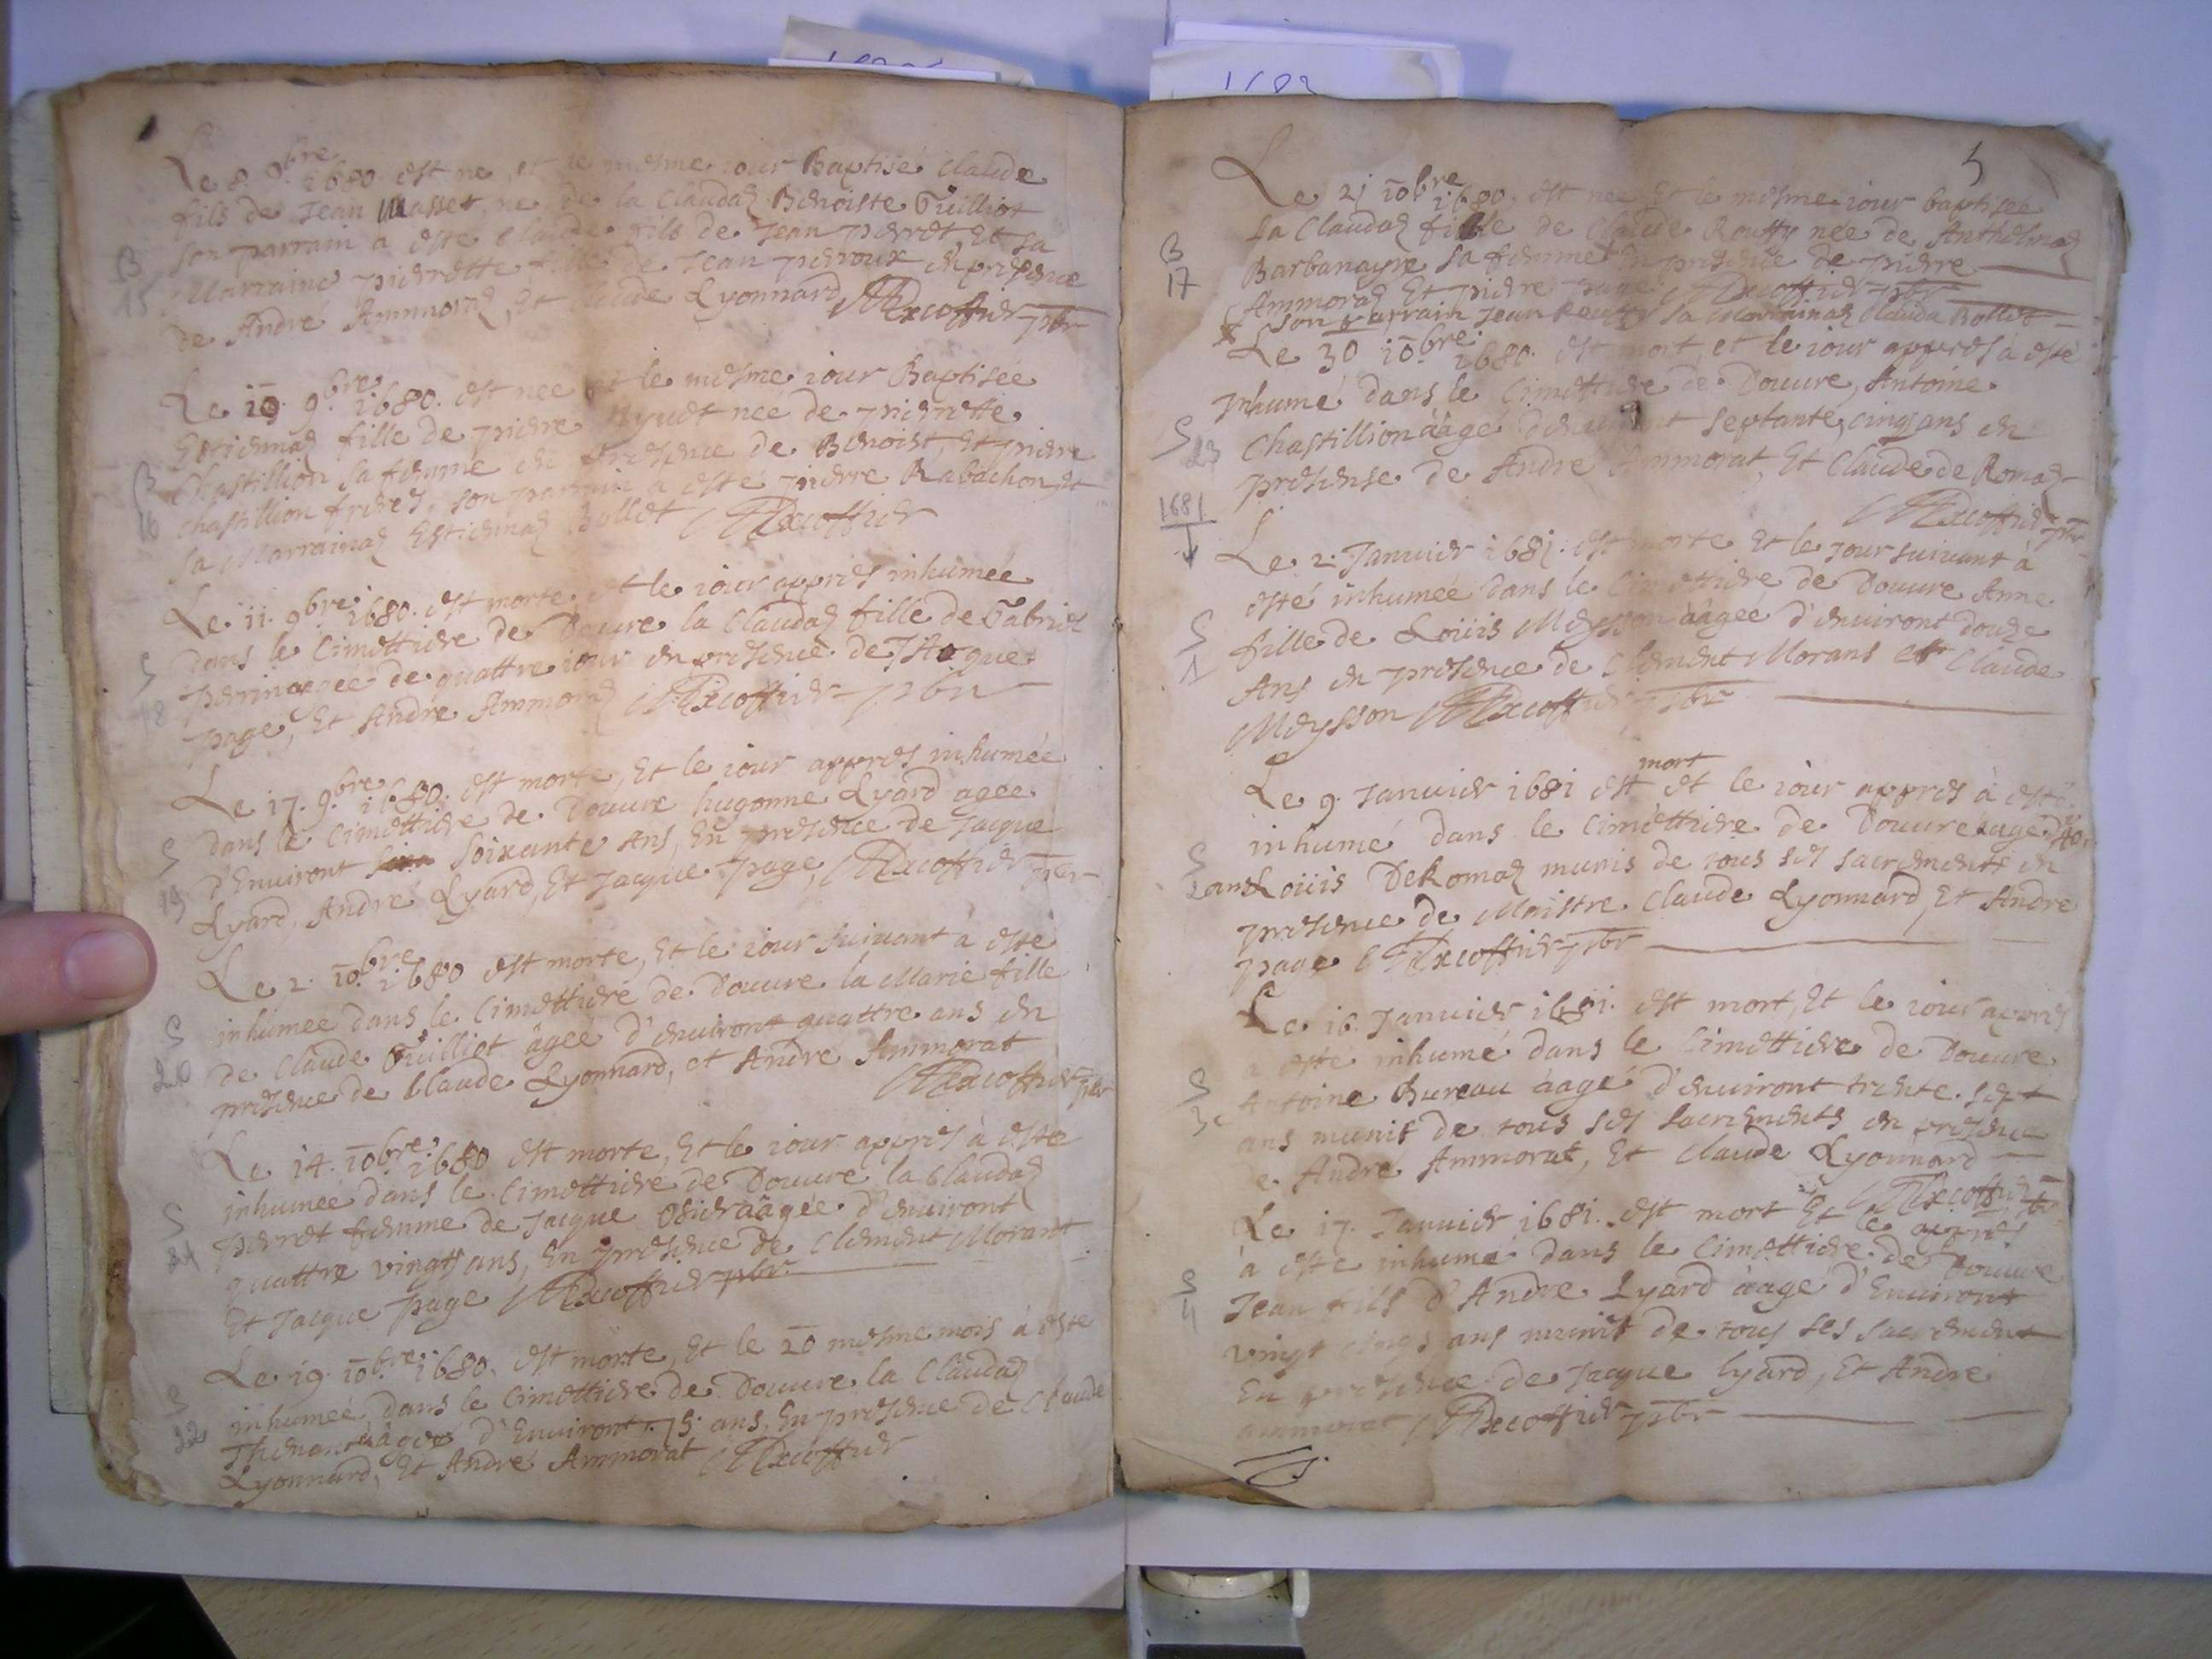 Le 8. 9bre 1680 est ne, et le mesme iour Baptisé Claude
fils de Jean Masset, ne de la Claudaz Benoiste Guilliot
son parrain a esté Claude fils de Jean perret, Et sa
B
15
Marraine pierrette fille de Jean peiroux en presence
de André Ammoraz, Et Claude Lyonnard Excoffier pbr
Le 10 9bre 1680. est neé et le mesme iour Baptiseé
Estiennaz fille de pierre neé de pierrette
Chastillion sa femme en presence de Benoist, Et pierre
B
16
Chastillion freres, son parrain a esté pierre Rabachon, et
sa Marrainaz Estiennaz Bollet Excoffier
Le 11. 9bre 1680. est morte et le iour appres inhumeé
dans le Cimettiere de Douure la Claudaz fille de Gabriel
S
18
perrin ageé de quattre iour en presence de Jacque
page, Et André Ammoraz Excoffier pbr
Le 17. 9bre 1680. est morte, Et le iour appres inhumeé
dans le Cimettiere de Douure hugonne Lyard ageé
S
19
d'Enuiront soixante Ans, En presence de Jacque
Lyard, André Lyard, Et Jacque page, Excoffier pbr
Le 2. 10bre 1680 est morte, Et le iour suiuant à esté
inhumeé dans le Cimettieré de Douure la Marie fille
S
20
de Claude Guilliot âgeé d'enuiront quattre ans en
presence de Claude Lyonnard, et André Ammorat
Excoffier pbr
Le 14. 10bre 1680 est morte, Et le iour appres à esté
inhumeé dans le Cimettieré de Douure la Claudaz
S
21
perret femme de Jacque ààgeé d'enuiront
quattre vingts ans, En presence de Clement Morant
Et Jacque page Excoffier pbr
Le 19. 10bre 1680. est morte, Et le 20 mesme mois à esté
inhumeé, dans le Cimettiere de Douure la Claudaz
S
22
âgeé d'Enuiront 75. ans, En presence de Claude
Lyonnard, Et André Ammorat Excoffier
5
Le 21 10bre 1680. est neé Et le mesme iour baptiseé
la Claudaz fille de Claude Routty neé de Anthelmaz
B
17
Barbanayre sa femme En presence de pierre
Ammoraz Et pierre page Excoffier pbr
son parrain Jean sa Marrainaz Clauda Bollet
Le 30 10bre 1680. est mort, et le iour appres à esté
Inhumé dans le Cimettiere de Douure, Antoine
S
23
Chastillion ààgé d'enuiront septante, cinq ans en
presense de André Ammorat, Et Claude de Romaz
Excoffier pbr
1681
Le 2. Januier 1681. est morte Et le Jour suiuant à
esté inhumeé dans le Cimettiere de Douure Anne
S
1
fille de Loüis Meysson ààgeé d'enuiront douze
Ans en presence de Clement Morans et Claude
Meysson Excoffier pbr
mort
Le 9. Januier 1681 est et le iour appres à esté
inhumé dans le Cimettiere de Douure
S
2
ans Loüis DeRomaz munis de tous ses sacrements en
presence de Maistre Claude Lyonnard, Et André
page Excoffier pbr
Le 16. Januier 1681. est mort, Et le iour appres
a esté inhumé dans le Cimettiere de Douure
S
3
Antoine Bureau ààgé d'enuiront trente sept
ans munit de tous ses sacrements en presence
de André Ammorat, Et Claude Lyonnard
Excoffier pbr
Le 17. Januier 1681. est mort Et le appres
à esté inhumé dans le Cimettiere de Douure
S
4
Jean fils d'André Lyard ààgé d'Enuiront
vingt cinqs ans munit de tous ses sacrement
En presence de Jacque lyard, Et André
ammorat Excoffier pbr